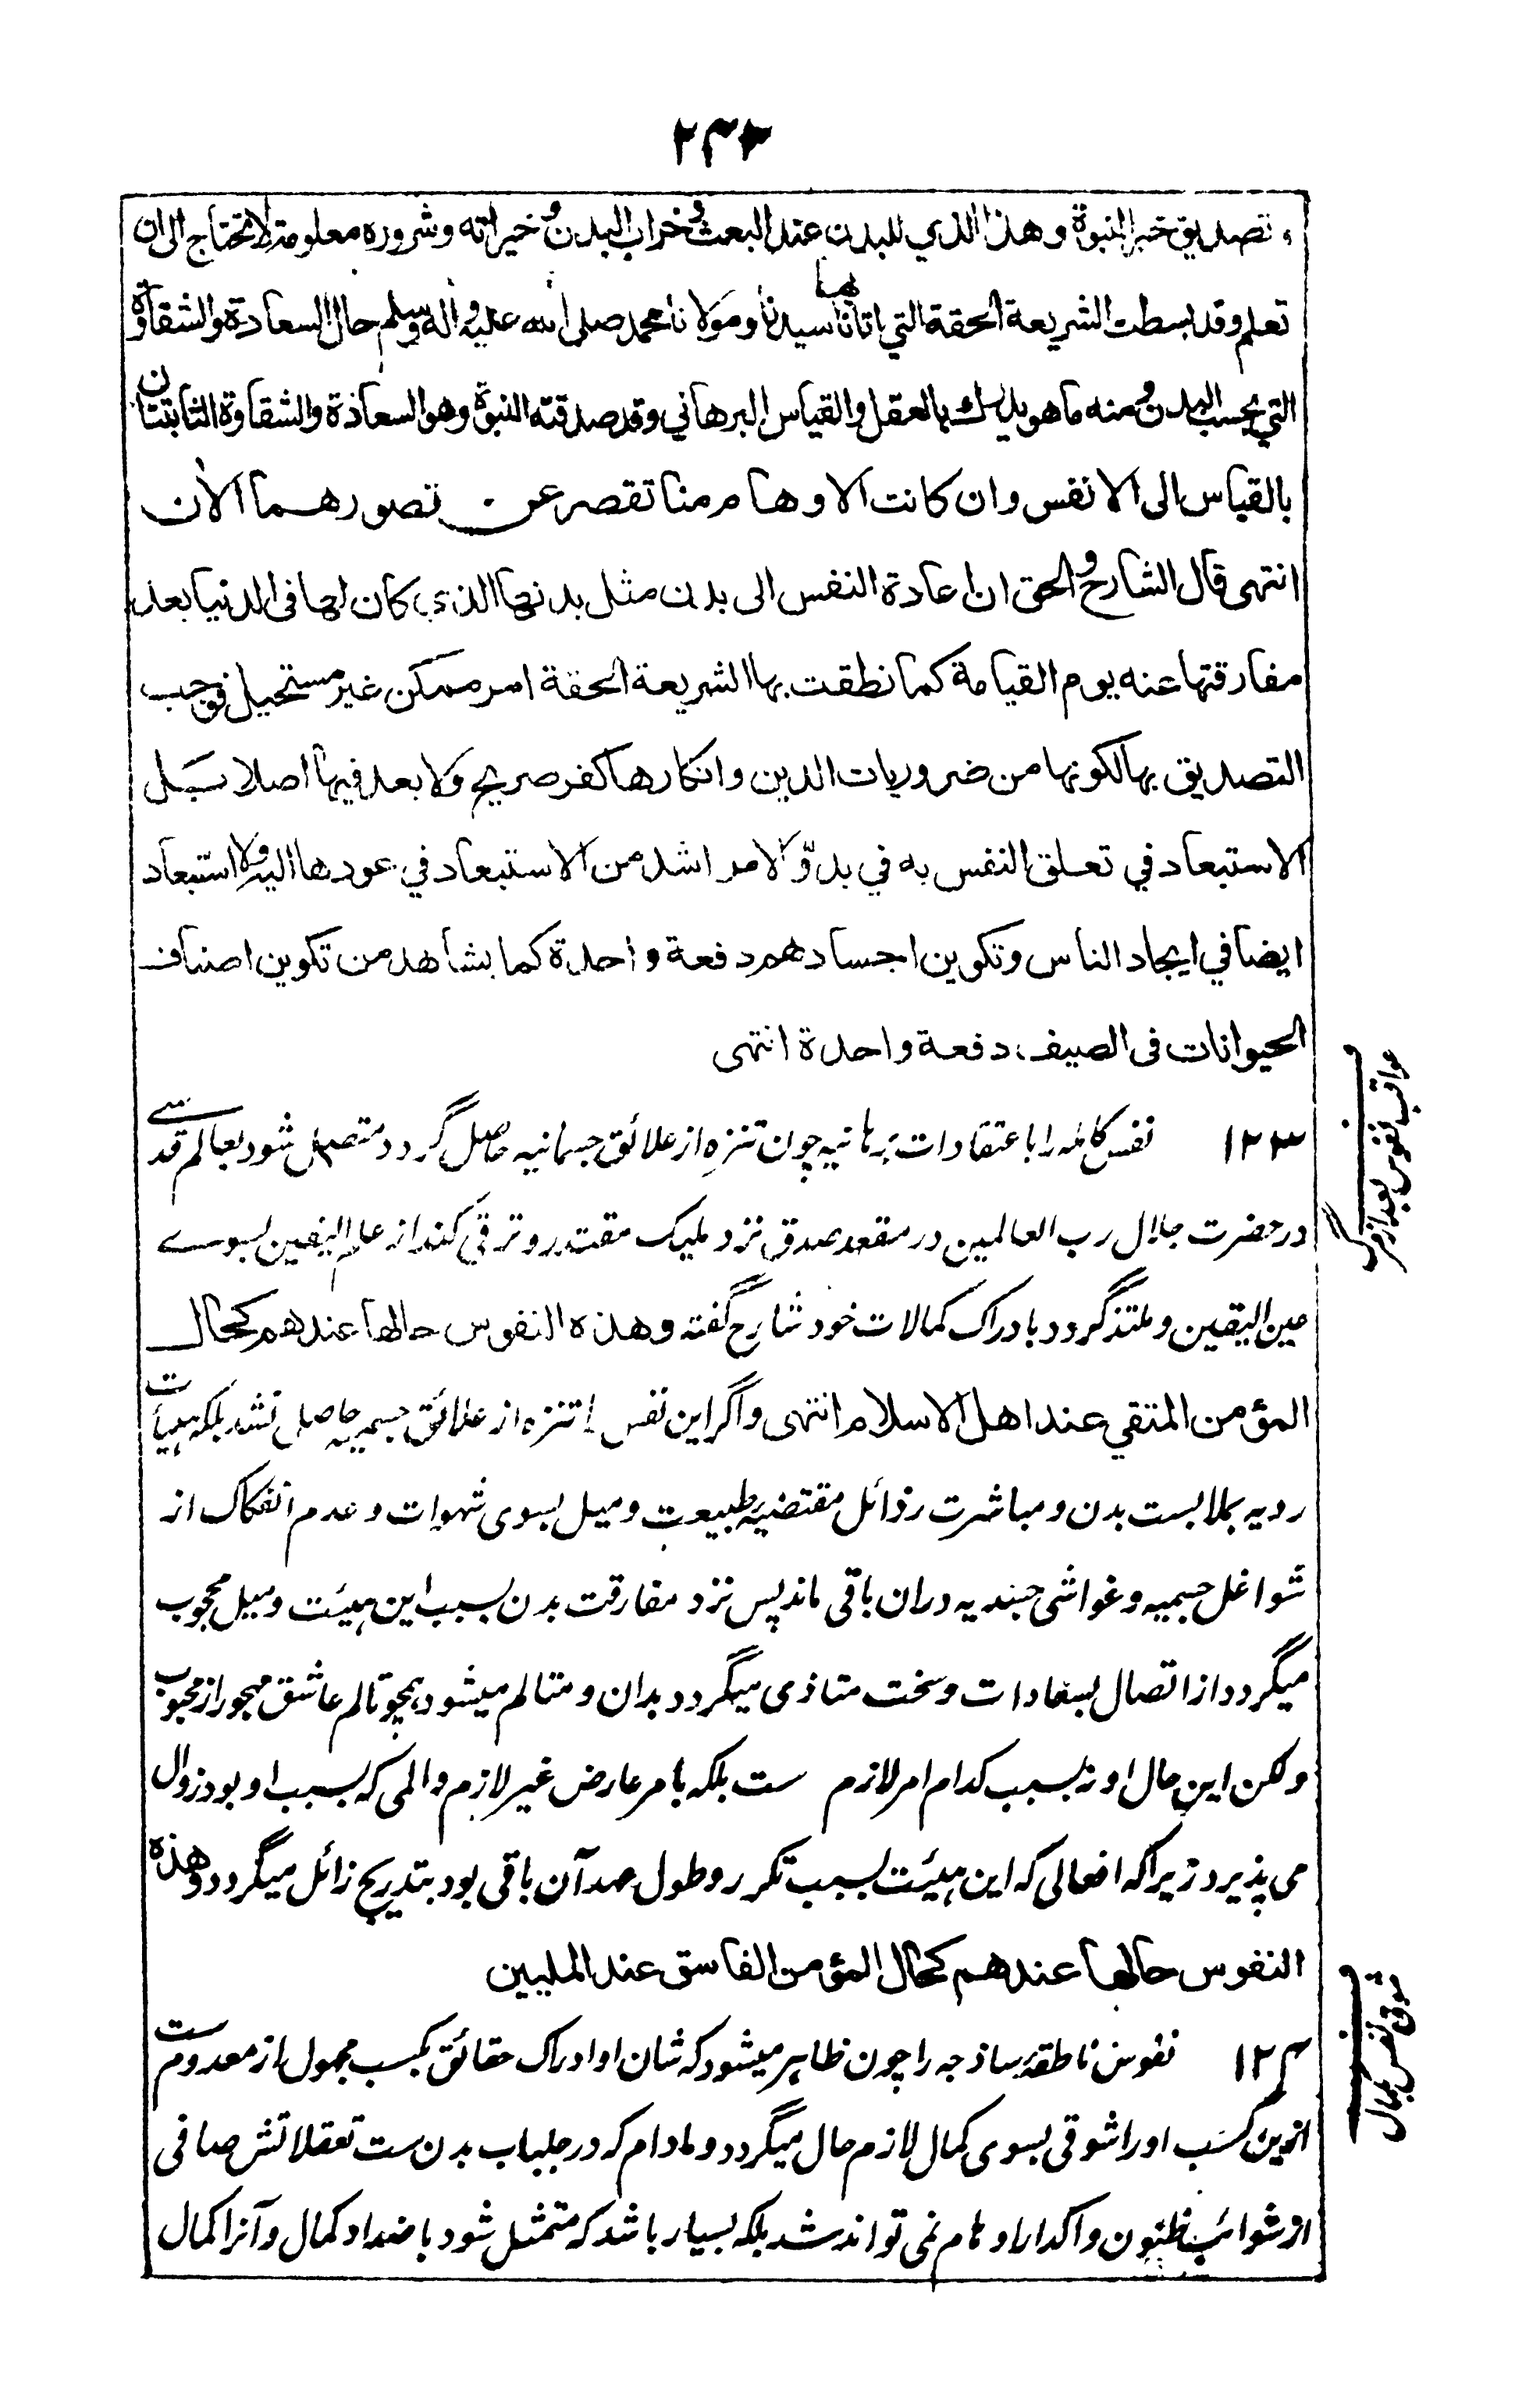 ۲۴۳
تصديق خبر النبوة وهذا الذي للبدن عند البعث وخراب البدن وخيراته وشروره معلومة لا تحتاج الى ان
تعلم وقد بسطت الشريعة الحقة التي اتانا بها سيدنا ومولانا محمد صلى الله عليه واله وسلم حال السعادة والشقاوة
التي بحسب البدن ومنه ما هو يدرك بالعقل والقياس البرهاني وقد صدقته النبوة وهو السعادة والشقاوة الثابتتان
بالقياس الى الانفس وان كانت الاوهام منا تقصر عن تصورهما الان
انتهى قال الشارح والحق ان اعادة النفس الى بدن مثل بدنها الذي كان لها في الدنيا بعد
مفارقتها عنه يوم القيامة كما نطقت بها الشريعة الحقة امر ممكن غير مستحيل فوجب
التصديق بها لكونها من ضروريات الدين وانكارها كفر صريح ولا بعد فيها اصلا بل
الاستبعاد في تعلق النفس به في بدو الامر اشد من الاستبعاد في عودها اليه ولا استبعاد
ايضا في ايجاد الناس وتكوين اجسادهم دفعة واحدة كما يشاهد من تكوين اصناف
الحيوانات في الصيف دفعة واحدة انتهى
عواقب نفوس بعد از مرگ
۱۲۳ نفس کامله را با عتقادات برهانیه چون تنزه از علائق جسمانیه حاصل گردد متصل شود بعالم قدسی
در حضرت جلال رب العالمین در مقعد صدق نزد ملیک مقتدر و ترقی کند از علم الیقین بسوے
عین الیقین و ملتذ گردد بادراک کمالات خود شارح گفته وهذه النفوس حالها عندهم كحال
المؤمن المتقي عند اهل الاسلام انتهى و اگر این نفس را تنزه از علائق جسمیه حاصل نشد بلکه هیأت
ردیه بملابست بدن و مباشرت رذائل مقتضیه طبیعت و میل بسوی شهوات و عدم انفکاک از
شواغل جسمیه و غواشی جسدیه دران باقی ماند پس نزد مفارقت بدن بسبب این هیئت و میل محجوب
میگردد از اتصال بسعادات و سخت متاذی میگردد بدان و متالم میشود همچو تالم عاشق مهجور از محبوب
و لکن این حال او نه بسبب کدام امر لازم ست بلکه بامر عارض غیر لازم و المی که بسبب او بود زوال
می پذیرد زیرا که افعالی که این هیئت بسبب تکرر و طول عهد آن باقی بود بتدریج زائل میگردد وهذه
النفوس حالها عندهم كحال المؤمن الفاسق عند المليين
شوق نفس بکمال
۱۲۴ نفوس ناطقه ساذجه را چون ظاهر میشود که شان او ادراک حقائق بکسب مجهول از معلوم ست
ازین کسب او را شوقی بسوی کمال لازم حال میگردد و مادام که در جلباب بدن ست تعقلاتش صافی
از شوائب ظنون و اکدار اوهام نمی تواند شد بلکه بسیار باشد که متمثل شود باضداد کمال و آنرا کمال